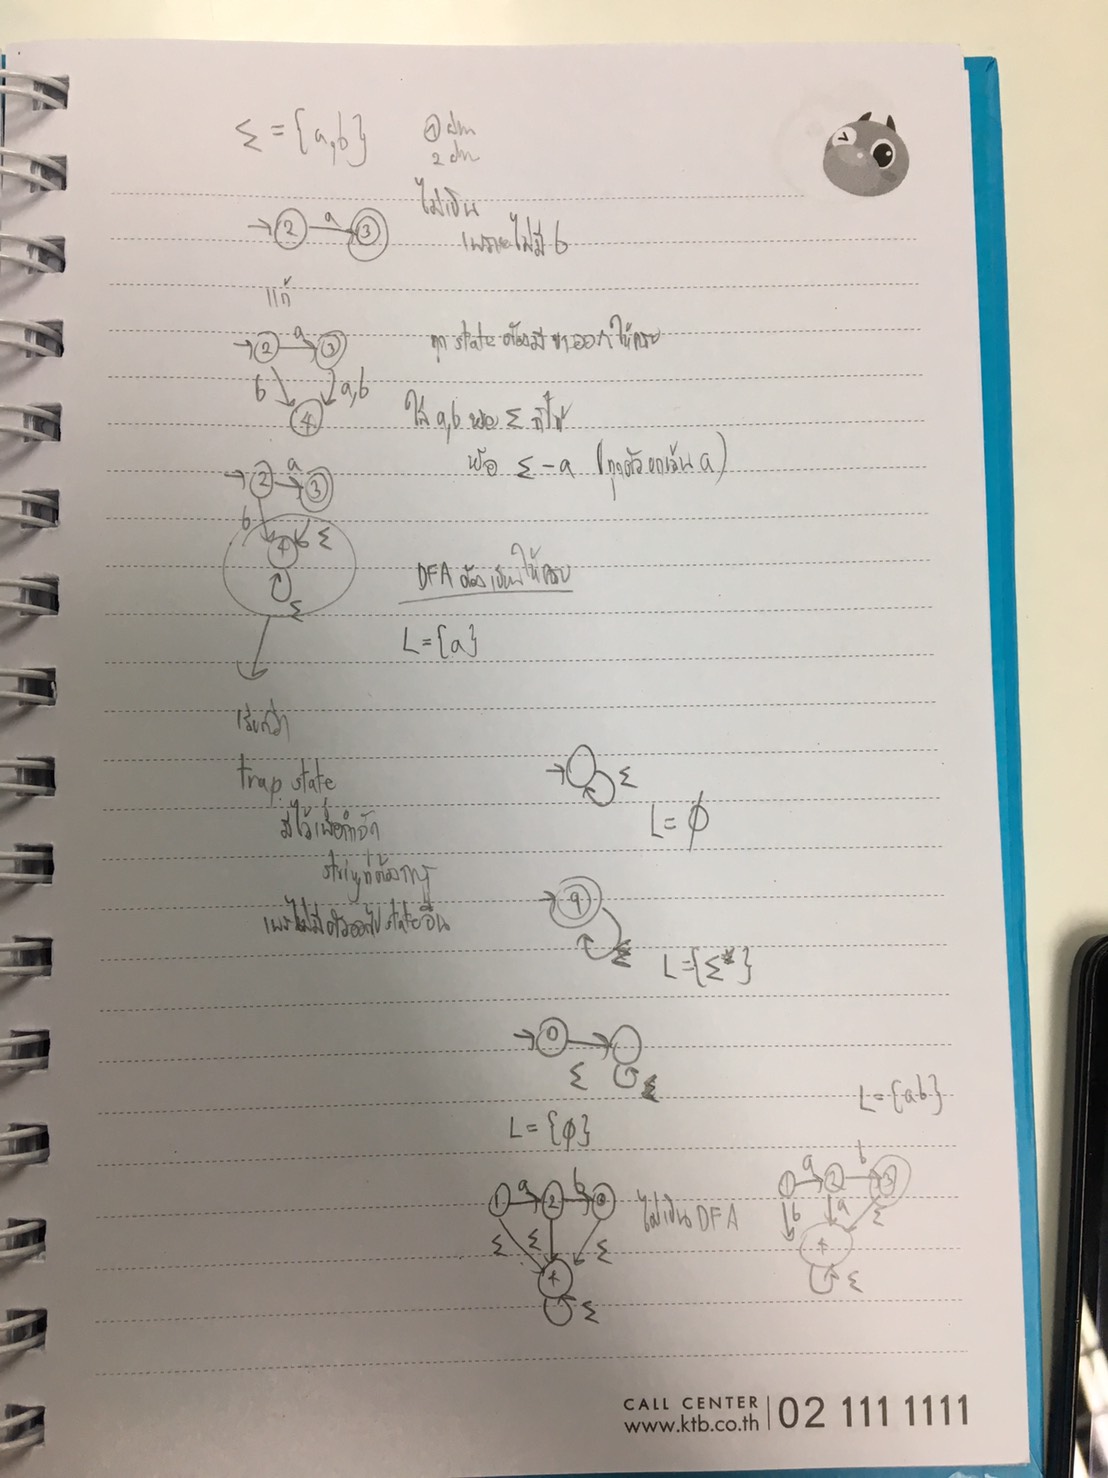 Σ = {a,b}
2 a 3
ไม่เป็น
เพราะไม่มี b
แก้
2 a 3
ทุก state ต้องมีขาออกให้ครบ
b a,b
4
ใส่ a,b หรือ Σ ก็ได้
หรือ Σ - a (ทุกตัวยกเว้น a)
2 a 3
b
4 Σ
Σ
DFA ต้องเขียนให้ครบ
L = {a}
เรียกว่า
trap state
มีไว้เพื่อกำจัด
Σ
L = ϕ
เพราะไม่มีตัวออกไป state อื่น
9
Σ
L = {Σ*}
0
Σ Σ
L = {ϕ}
L = {ab}
1 a 2 b
ไม่เป็น DFA
Σ Σ Σ
4
Σ
1 a 2 b 3
b a Σ
4
Σ
CALL CENTER
www.ktb.co.th
02 111 1111